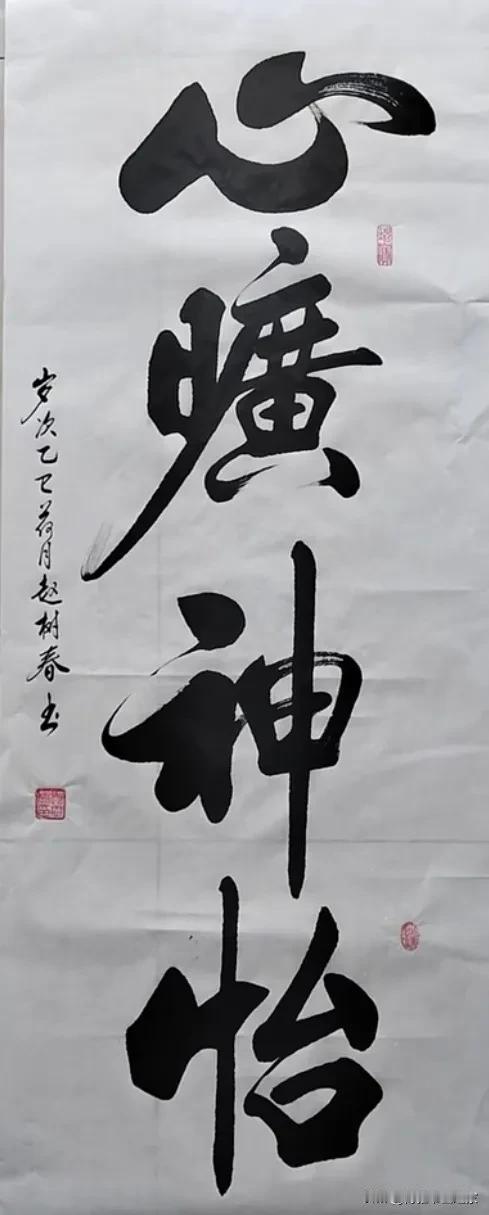 心曠神怡
岁次乙巳荷月赵树春书